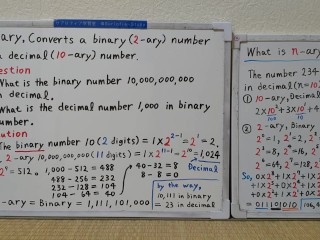 ary. Converts a binary (2-ary) number
a decimal (10-ary) number.
estion
What is the binary number 10,000,000,000
in decimal.
What is the decimal number 1,000 in binary
number.
ution
The binary number 10 (2 digits) = 1×2²⁻¹ = 2¹ = 2.
2-ary 10,000,000,000 (11 digits) = 1×2¹¹⁻¹ = 2¹⁰ = 1,024
Decimal
2⁹ = 512. 1,000 - 512 = 488
488 - 256 = 232
232 - 128 = 104
104 - 64 = 40
40 - 32 = 8
8 - 8 = 0
by the way,
10,111 in binary
= 23 in decimal
-ary = Binary = 1,111,101,000
What is n-ary
The number 234
in decimal (n=10
① 10-ary, Decimal
2×10²+3×10¹+4
② 2-ary, Binary
2⁰=1, 2¹=2, 2²
2⁶=64, 2⁷=128, 2⁸
So, 0×2⁹+1×2⁸+
+1×2⁵+0×2⁴+
+1×2¹+0×2⁰